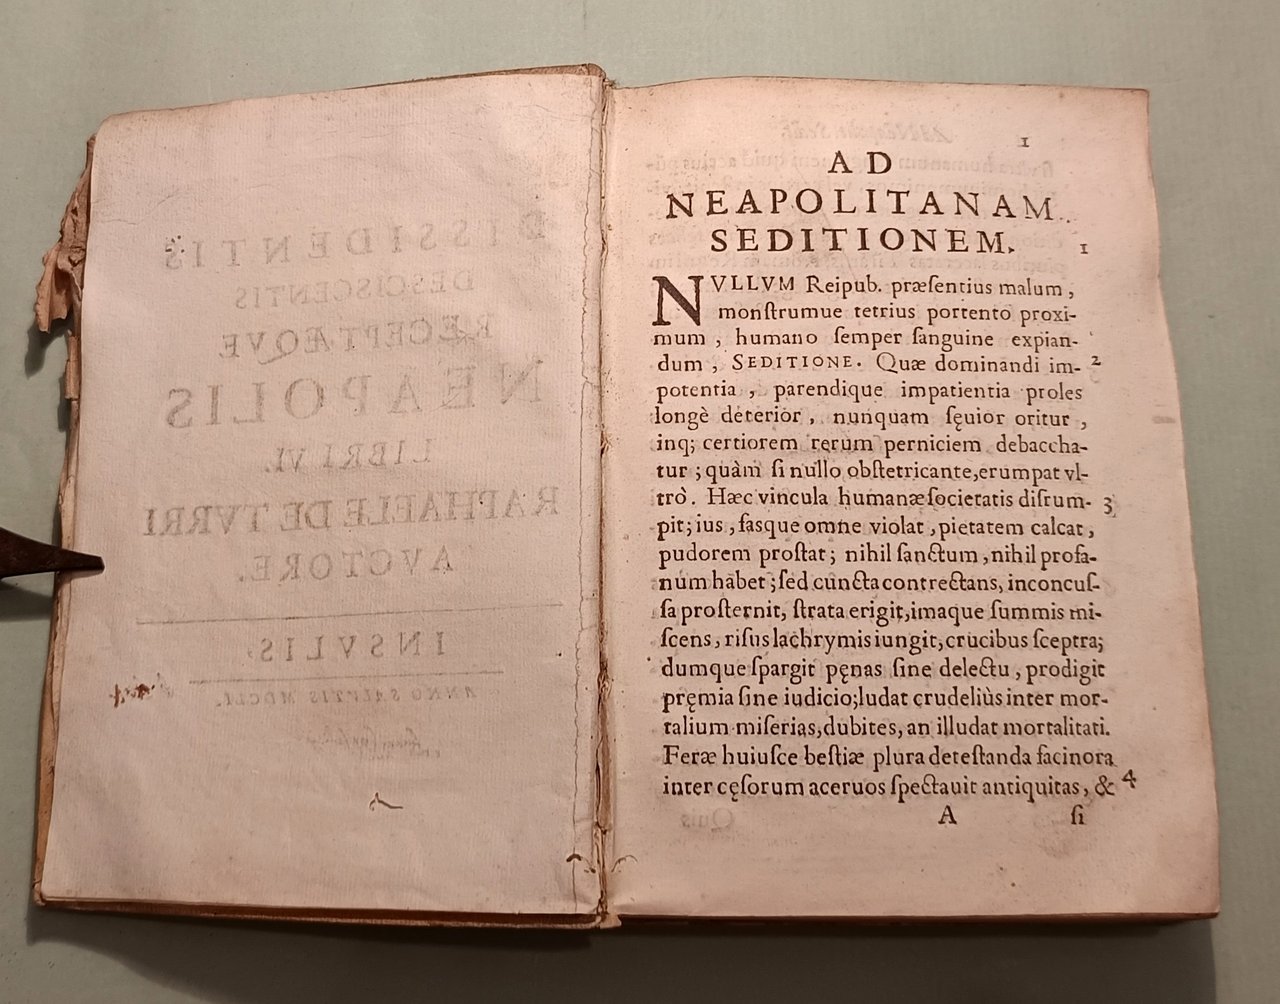 DISSIDENTIS
DESCISCENTIS
RECEPTÆQVE
NEAPOLIS
LIBRI VI.
RAPHAELE DE TVRRI
AVCTORE.
INSVLIS,
ANNO SALVTIS MDCLI.
1
AD
NEAPOLITANAM
SEDITIONEM.
1
NVLLVM Reipub. præſentius malum,
monſtrumue tetrius portento proxi-
mum, humano ſemper ſanguine expian-
dum, SEDITIONE. Quæ dominandi im- 2
potentia, parendique impatientia proles
longè deterior, nunquam ſęuior oritur,
inq; certiorem rerum perniciem debaccha-
tur; quàm ſi nullo obſtetricante, erumpat vl-
trò. Hæc vincula humanæ ſocietatis diſrum- 3
pit; ius, faſque omne violat, pietatem calcat,
pudorem proſtat; nihil ſanctum, nihil profa-
num habet; ſed cuncta contrectans, inconcuſ-
ſa proſternit, ſtrata erigit, imaque ſummis mi-
ſcens, riſus lachrymis iungit, crucibus ſceptra;
dumque ſpargit pęnas ſine delectu, prodigit
pręmia ſine iudicio; ludat crudeliùs inter mor-
talium miſerias, dubites, an illudat mortalitati.
Feræ huiuſce beſtiæ plura deteſtanda facinora
inter cęſorum aceruos ſpectauit antiquitas, & 4
A ſi